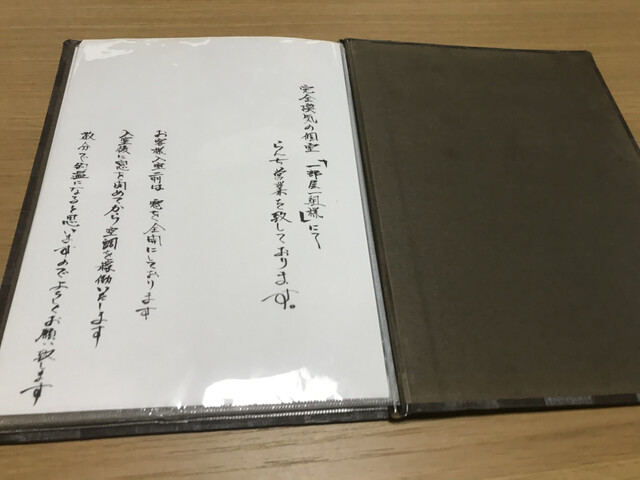 完全換気の個室「一部屋一組様」にて
らんち営業を致しております。
お客様入室前は窓を全開にしております
入室後に窓を閉めてから空調を稼働いたします
数分で快適になると思いますのでよろしくお願い致します